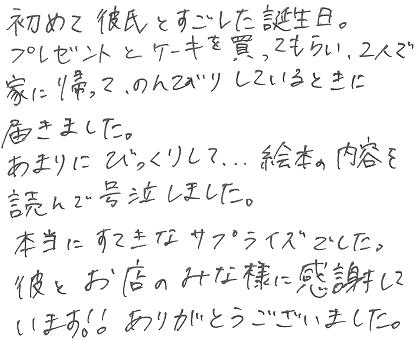 初めて彼氏とすごした誕生日。
プレゼントとケーキを買ってもらい、2人で
家に帰って、のんびりしているときに
届きました。
あまりにびっくりして…絵本の内容を
読んで号泣しました。
本当にすてきなサプライズでした。
彼とお店のみな様に感謝して
います!! ありがとうございました。